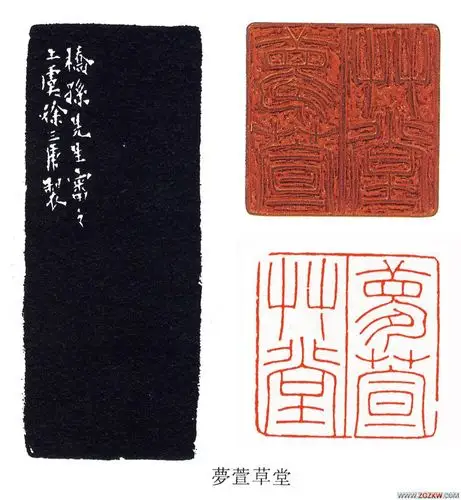 橋孫先生審之
上虞徐三庚製
夢萱
艸堂
夢萱草堂
WWW.ZGZKW.COM